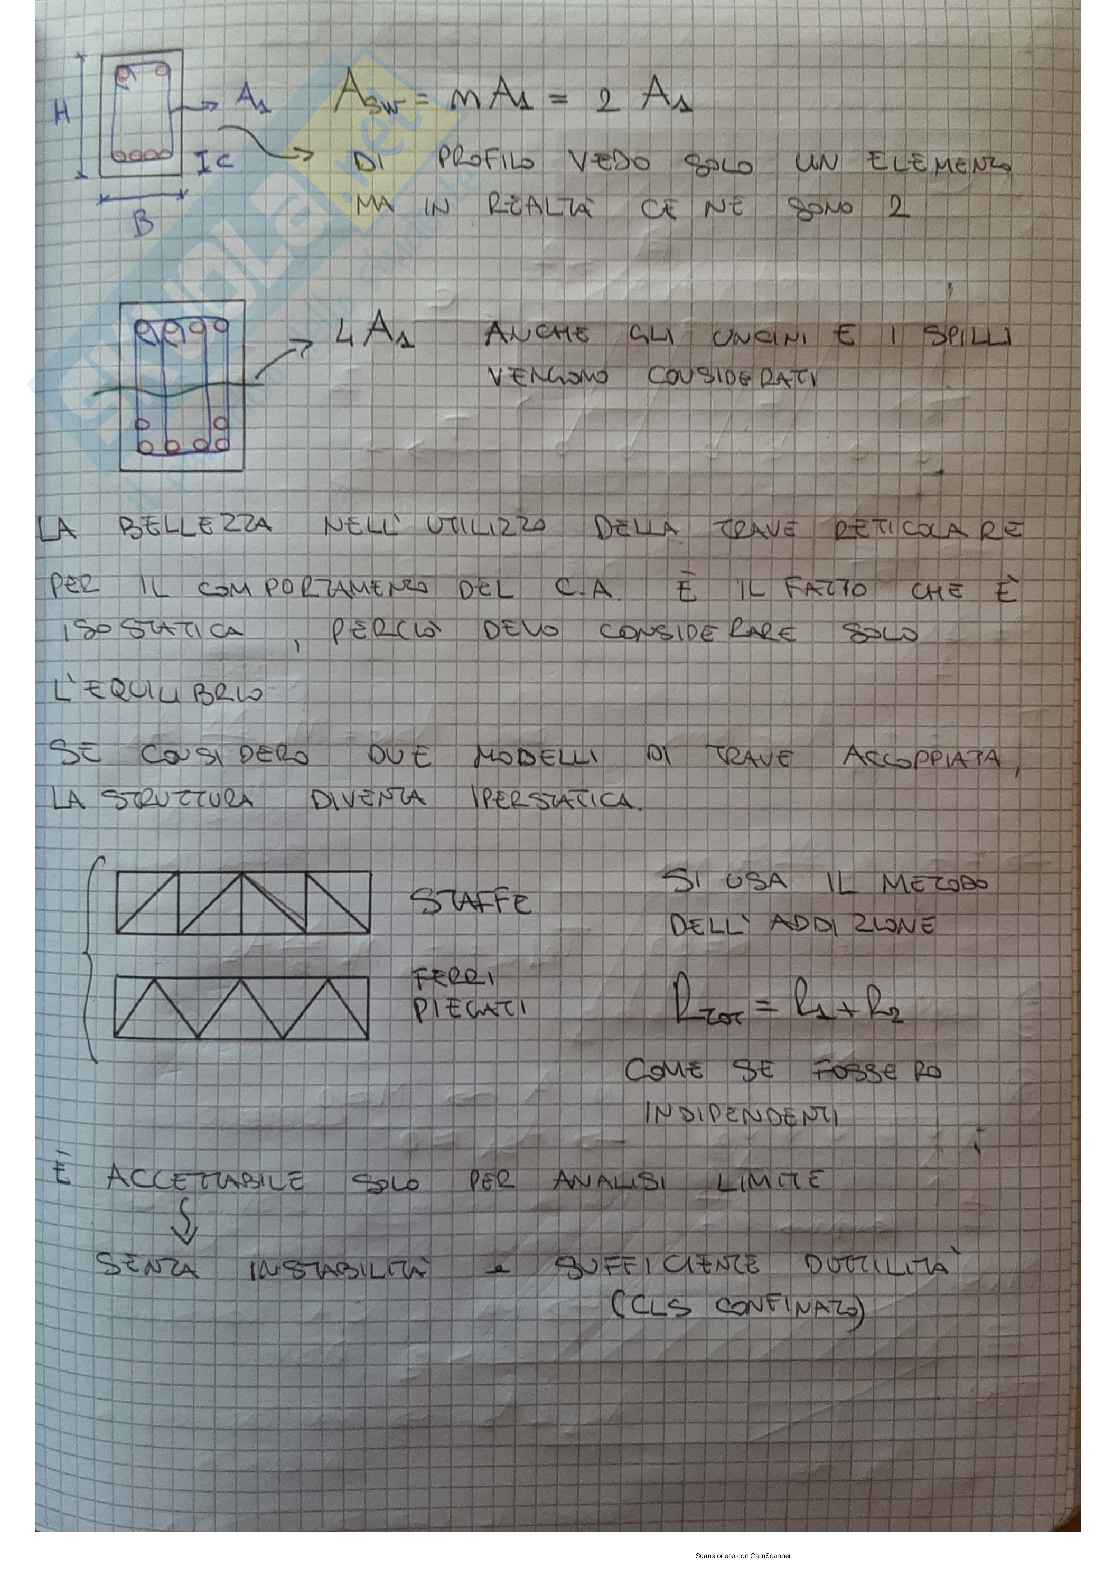 H
A1
B
Asw = m A1 = 2 A1
DI PROFILO VEDO SOLO UN ELEMENTO
MA IN REALTÀ CE NE SONO 2
4 A1
ANCHE GLI UNCINI E I SPILLI
VENGONO CONSIDERATI
LA BELLEZZA NELL'UTILIZZO DELLA TRAVE RETICOLARE
PER IL COMPORTAMENTO DEL C.A. È IL FATTO CHE È
ISOSTATICA, PERCIÒ DEVO CONSIDERARE SOLO
L'EQUILIBRIO
SE CONSIDERO DUE MODELLI DI TRAVE ACCOPPIATA,
LA STRUTTURA DIVENTA IPERSTATICA.
STAFFE
FERRI
PIEGATI
SI USA IL METODO
DELL'ADDIZIONE
RTOT = R1 + R2
COME SE FOSSERO
INDIPENDENTI
È ACCETTABILE SOLO PER ANALISI LIMITE
SENZA INSTABILITÀ e SUFFICIENTE DUTTILITÀ
(CLS CONFINATO)
Scansionato con CamScanner